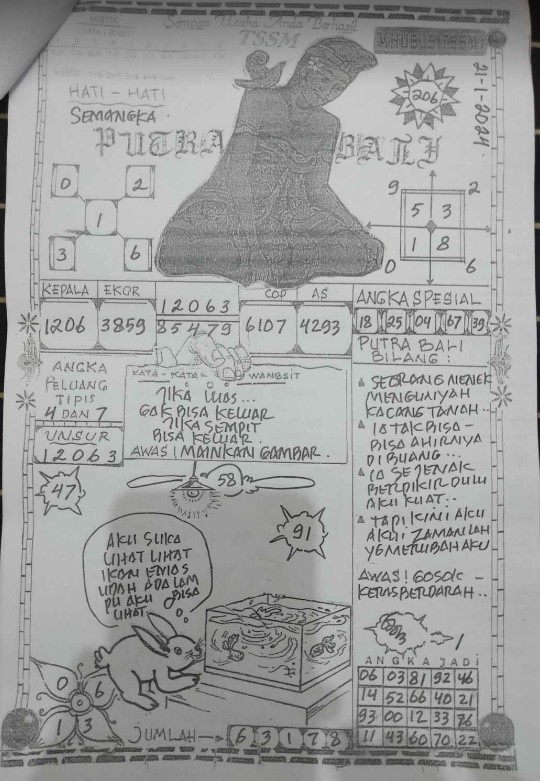 MISTIK
Semoga Usaha Anda Berhasil
TSSM
KHUSUS TSSM
21-1-2024
HATI - HATI
SEMANGKA.
206
PUTRA BALI
0 2
1
3 6
9 2
5 3
1 8
0 6
KEPALA EKOR
1206 3859
12063
85479
COP AS
6107 4293
ANGKA SPESIAL
18 25 04 67 39
ANGKA
PELUANG
TIPIS
4 DAN 7
UNSUR
12063
KATA - KATA WANGSIT
JIKA LUAS...
GAK BISA KELUAR
JIKA SEMPIT
BISA KELUAR.
AWAS! MAINKAN GAMBAR.
PUTRA BALI
BILANG :
SEORANG NENEK
MENGUNYAH
KACANG TANAH..
IA TAK BISA -
BISA AHIRNYA
DI BUANG...
IA SEJENAK
BERDIKIR DULU
AKU KUAT..
TAPI KINI AKU
AKUI ZAMAN LAH
YG MERUBAH AKU
AWAS! GOSOK -
KERAS BERDARAH..
47
58
91
AKU SUKA
LIHAT LIHAT
IKAN EMAS
UDAH ADA LAM
PU AKU BISA
LIHAT
0 6
1 3
JUMLAH 6 3 1 7 8
ANGKA JADI
06 03 81 92 46
14 52 66 40 21
93 00 12 33 76
11 43 60 70 22